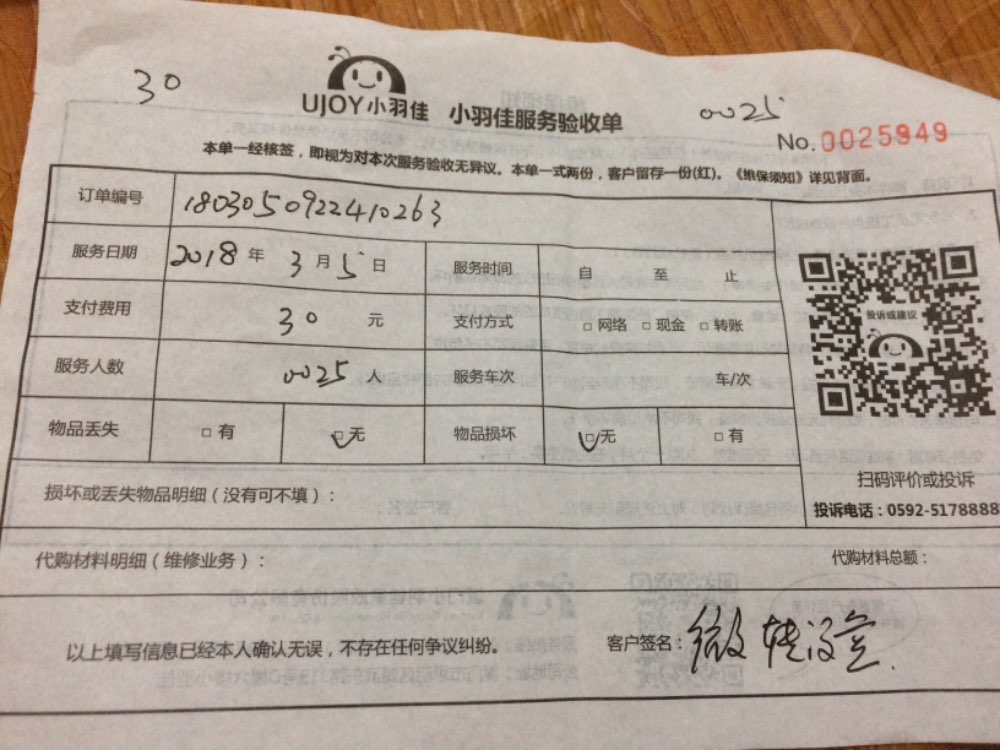 30
UJOY小羽佳 小羽佳服务验收单
0025
No.0025949
本单一经核签，即视为对本次服务验收无异议。本单一式两份，客户留存一份(红)。《维保须知》详见背面。
订单编号 1803050922410263
服务日期 2018 年 3 月 5 日 服务时间 自 至 止
支付费用 30 元 支付方式 □ 网络 □ 现金 □ 转账
投诉或建议
服务人数 0025 人 服务车次 车/次
物品丢失 □ 有 □ 无 物品损坏 □ 无 □ 有
扫码评价或投诉
损坏或丢失物品明细（没有可不填）：
投诉电话：0592-5178888
代购材料明细（维修业务）： 代购材料总额：
以上填写信息已经本人确认无误，不存在任何争议纠纷。 客户签名：微